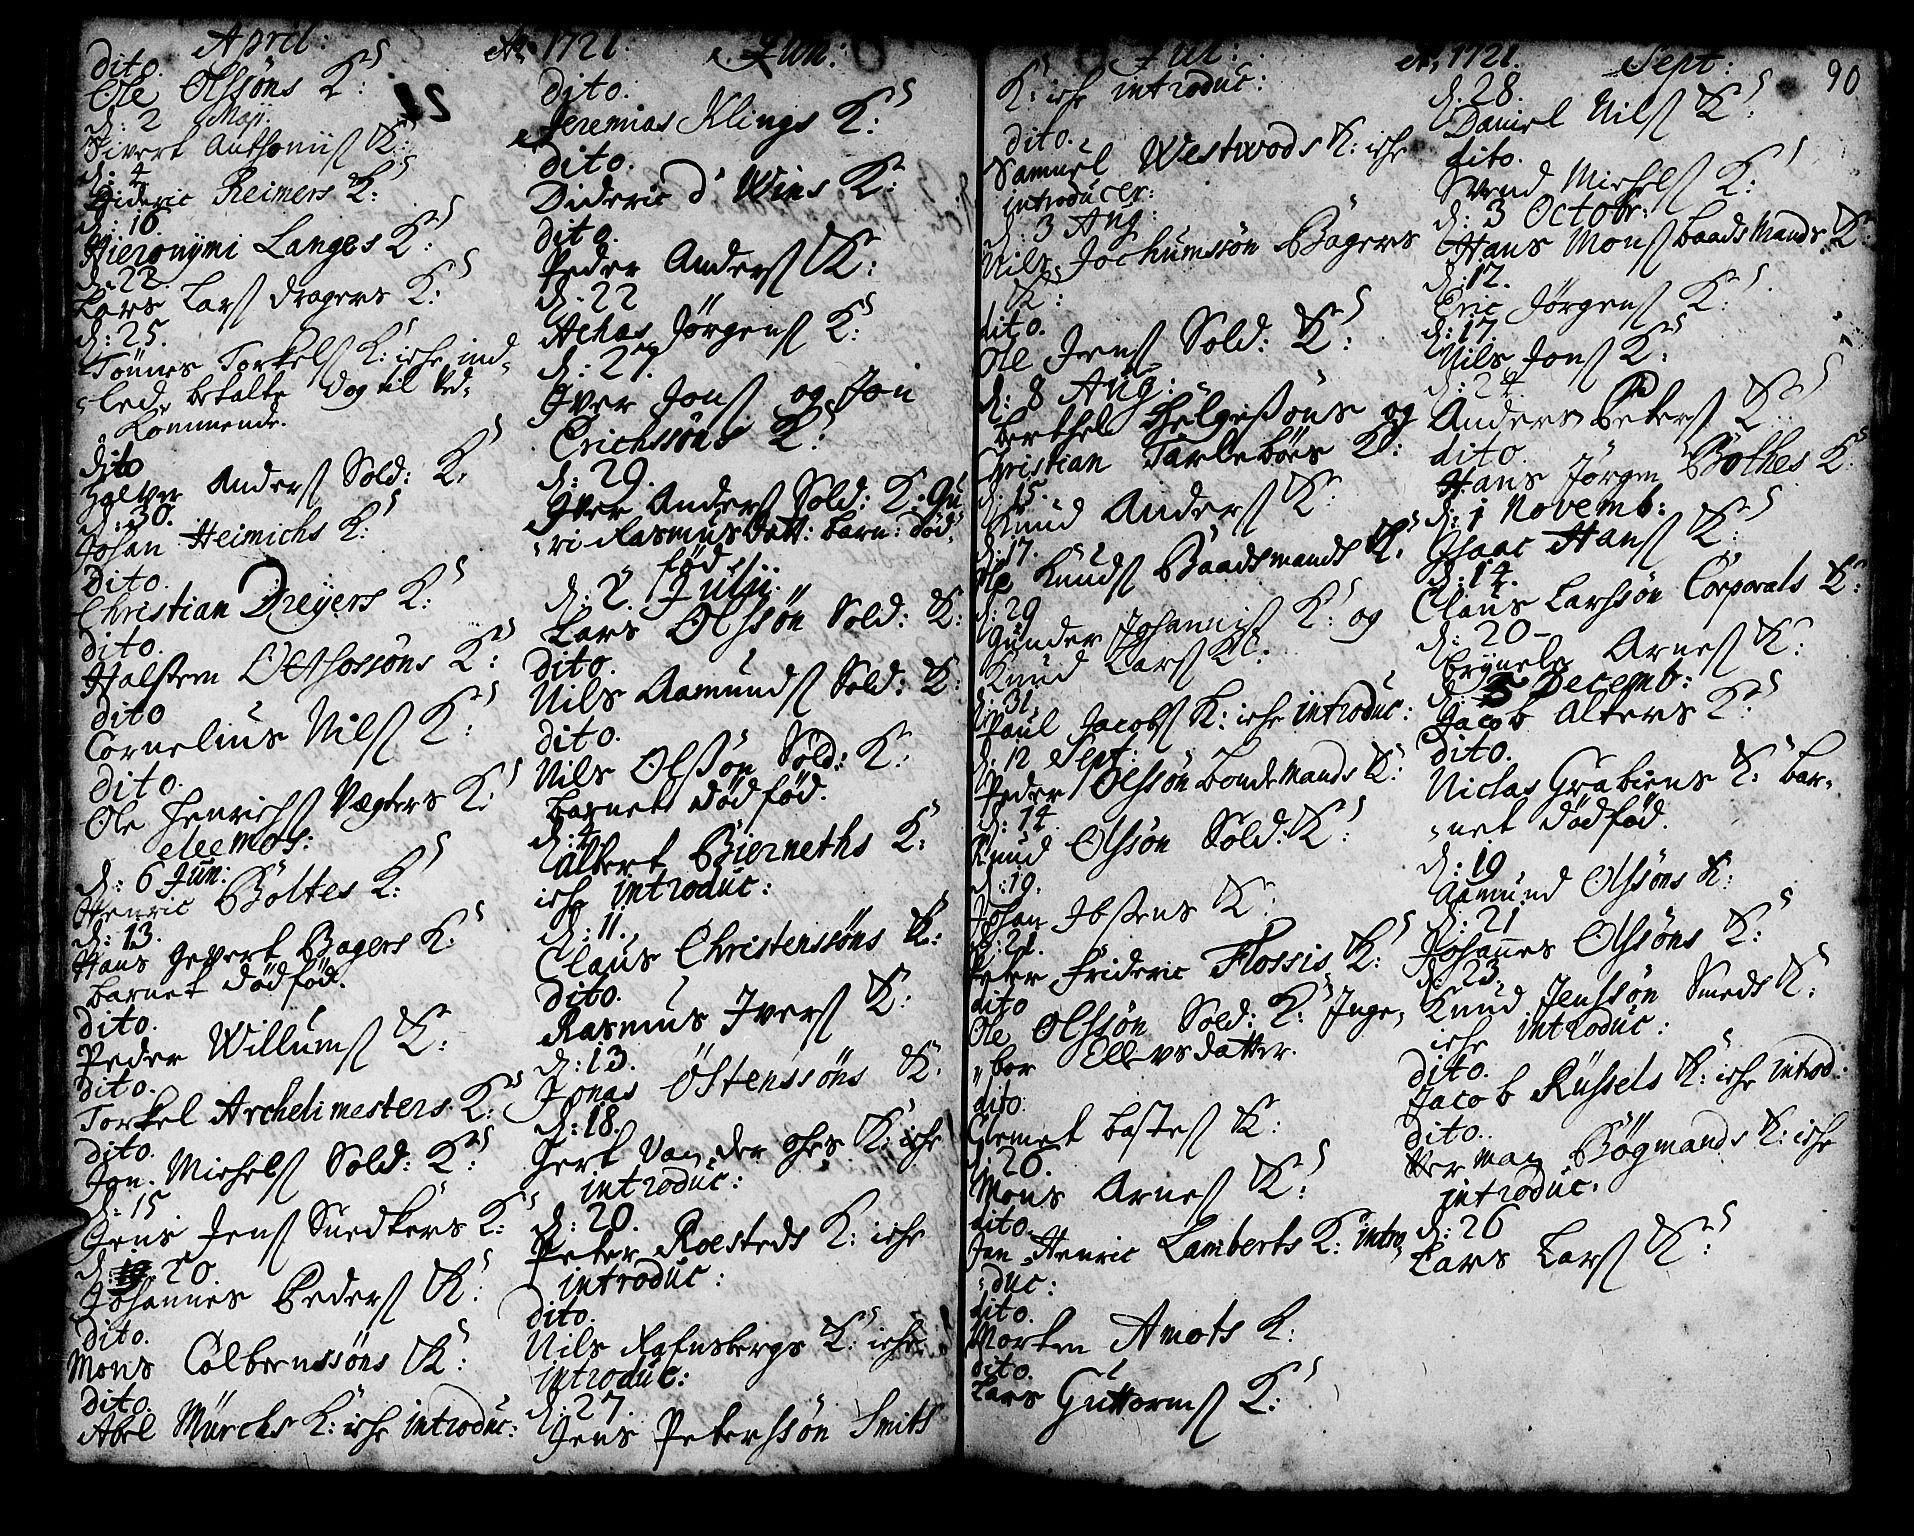 April: Ao 1721. Jun:
dito.
Ole Olssöns K:
d: 2 Maji.
Sivert Anthoniis K:
d: 4
Dideric Reimers K:
d: 16.
Hieronymi Langes K:
d: 22.
Lars Lars dragers K:
d: 25.
Tönnes Torkels K: iche ind-
-led, betalte dog til ved-
kommende.
dito
Anders Sold: K:
d: 30.
Johan Heimichs K:
dito.
Christian Dreyers K:
dito.
Halsten Ottossöns K:
dito
Cornelius Nils K:
dito.
Ole Henrichs Vægters K:
eleemos:
d: 6 Jun:
Henric Böltes K:
d: 13.
Hans Gevert Bagers K:
barnet dödföd.
dito.
Peder Willums K:
dito.
Torkel Archelimesters K:
dito.
Jon Michels Sold: K:
d: 15.
Jens Jens Snedkers K:
d: 20.
Johannes Peders K:
dito.
Mons Colbernssöns K:
dito.
Abel Mürchs K: iche introduc:
dito.
Jeremias Klings K:
dito.
Dideric d' Wins K:
dito.
Peder Anders K:
d: 22
Achas Jörgens K:
d: 27.
Iver Jons og Jon
Erichssöns K:
d: 29.
Iver Anders Sold: K: Gu
-ri Rasmus datt: barn: död-
föd
d: 2. Julij.
Lars Olssön Sold: K:
dito.
Nils Aamunds Sold: K:
dito.
Nils Olssön Sold: K:
barnet dödföd.
d: 4
Albert Bierneths K:
iche introduc:
d: 11.
Claus Christenssöns K:
dito.
Rasmus Ivers K:
d: 13.
Jonas Östenssöns K:
d: 18.
Gert Van der K: iche
introduc:
d: 20.
Peter Roesteds K: iche
introduc:
dito.
Nils Rafnsbergs K: iche
introduc:
d: 27.
Jens Peterssön Smits
Jul: Ao 1721. Sept: 90
K: iche introduc:
dito.
Samuel Westwods K: iche
introducer:
d: 3 Aug:
Nils Jochumssön Bagers
K:
dito.
Ole Jens Sold: K:
d: 8 Aug:
Berthel Helgessöns og
Christian Tarleböes K:
d: 15.
Knud Anders K:
d: 17.
Ole Knuds Baadsmands K:
d: 29
Gunder Johannis K: og
Knud Lars K:
d: 31.
Paul Jacobs K: iche introduc:
d: 12 Sept:
Peder Olssön bondemands K:
d: 14
Knud Olssön Sold: K:
d: 19.
Johan Ibsens K:
d: 21.
Peter Frideric Flossis K:
dito
Ole Olssön Sold: K: Inge-
-bor Ellevsdatter.
dito.
Clemet K:
d: 26.
Mons Arnes K:
dito.
Jan Henric Lamberts K: intro-
-duc:
dito.
Morten Amots K:
dito.
Lars Guttorms K:
d. 28.
Daniel Nils K:
dito.
Svend Michels K:
d: 3 Octobr:
Hans Mons baadsmands K:
d: 12.
Eric Jörgens K:
d: 17.
Nils Jons K:
d: 24
Anders Peters K:
dito.
Hans Jörgen Böthes K:
d: 1 Novemb:
Isaac Hans K:
d: 14.
Claus Larssön Corporals K:
d: 20
Brynel Arnes K:
d: 5 Decemb:
Jacob Alters K:
dito.
Niclas Grabiens K: bar-
-net dödföd.
d: 19
Aamund Olssöns K:
d: 21
Johannes Olssöns K:
d: 23.
Knud Jenssön Smeds K:
iche introduc:
dito.
Jacob Rüssels K: iche introd:
dito.
Herman Bögmands K: iche
introduc.
d: 26
Lars Lars K: